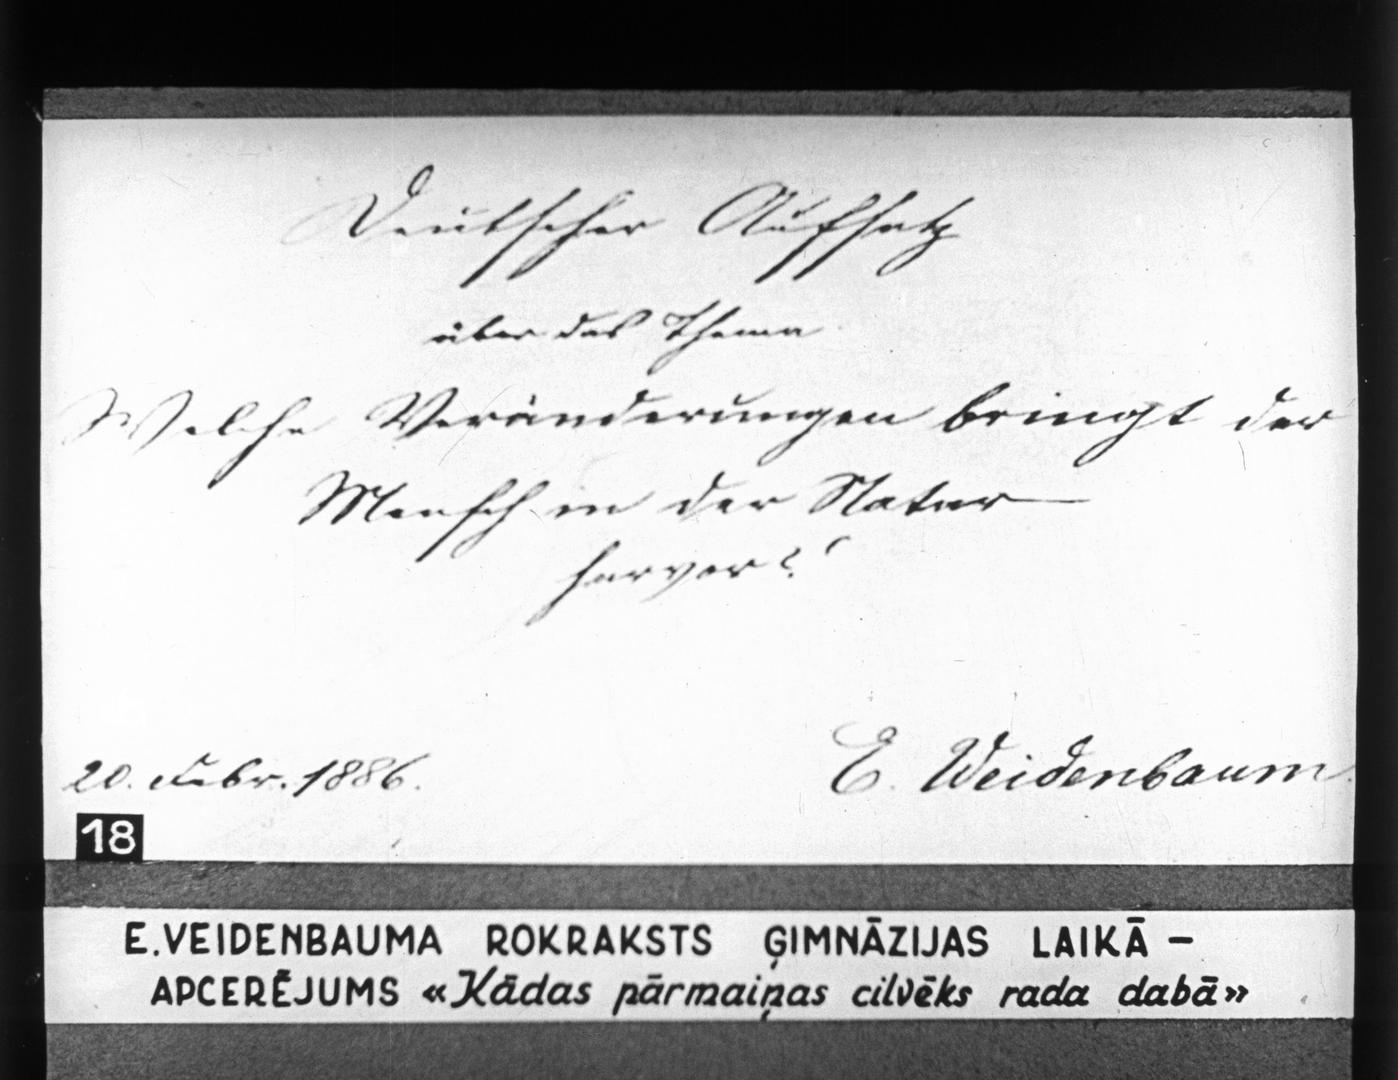 Deutscher Aufsatz
über das Thema
Welche Veränderungen bringt der
Mensch in der Natur
hervor?
20. Febr. 1886.
E. Weidenbaum.
18
E.VEIDENBAUMA ROKRAKSTS ĢIMNĀZIJAS LAIKĀ –
APCERĒJUMS «Kādas pārmaiņas cilvēks rada dabā»